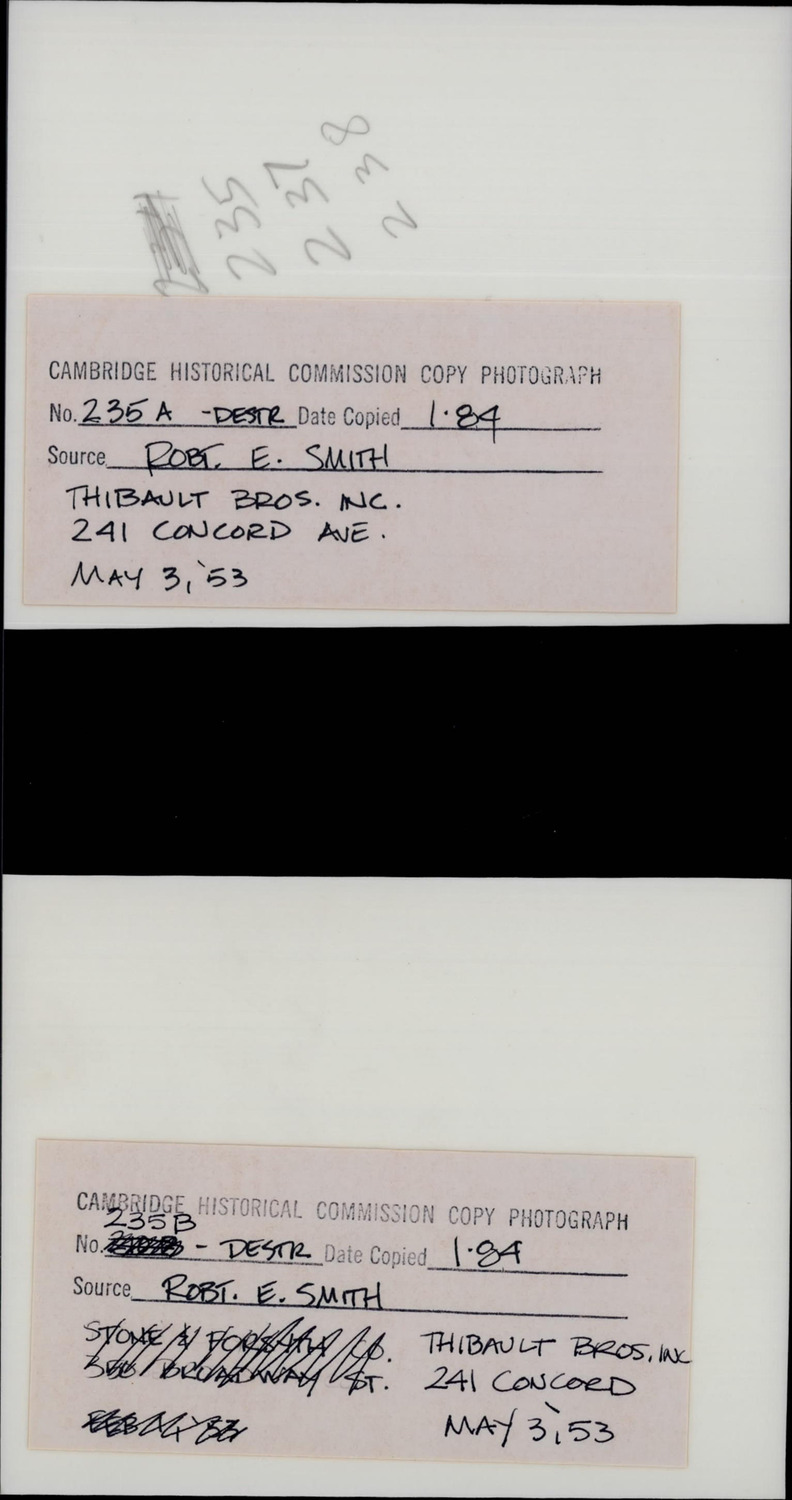 235
237
238
CAMBRIDGE HISTORICAL COMMISSION COPY PHOTOGRAPH
No. 235 A -DESTR Date Copied 1·84
Source ROBT. E. SMITH
THIBAULT BROS. INC.
241 CONCORD AVE.
MAY 3, '53
CAMBRIDGE HISTORICAL COMMISSION COPY PHOTOGRAPH
235B
No. - DESTR Date Copied 1·84
Source ROBT. E. SMITH
STONE & FORSYTH CO. THIBAULT BROS. INC
BROADWAY ST. 241 CONCORD
MAY 3, '53